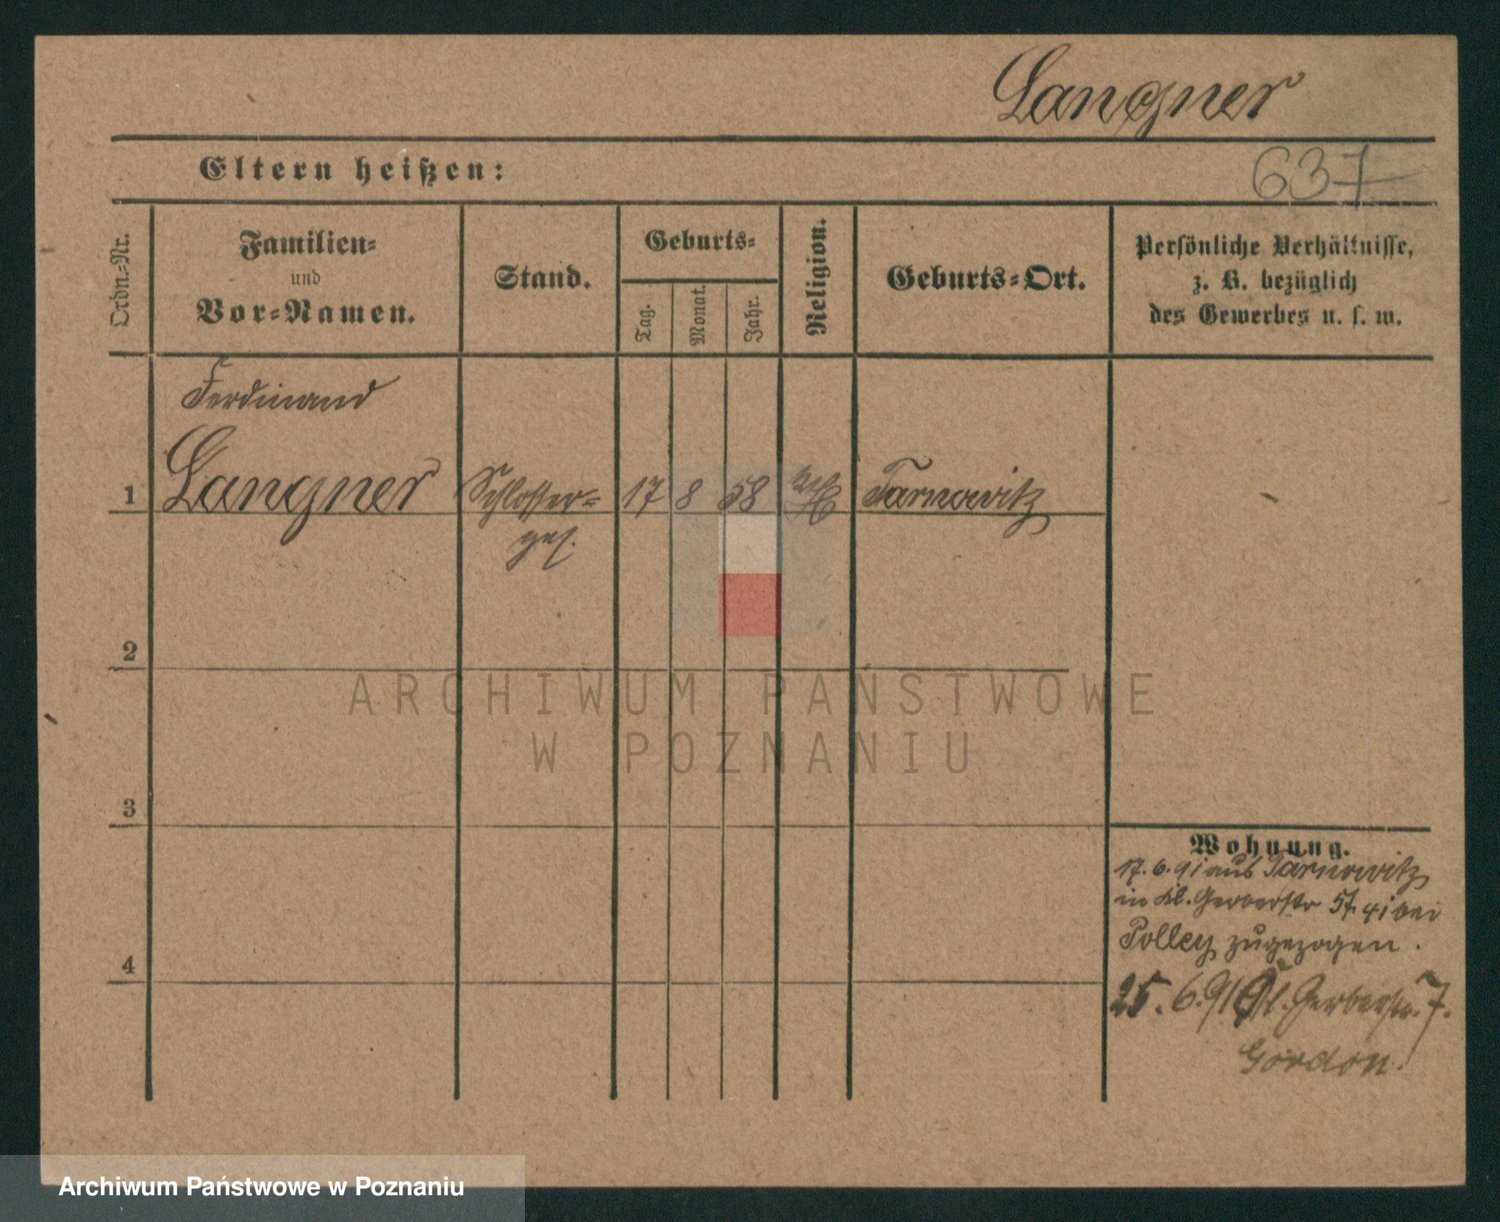 Langner
Eltern heißen:
637
Ordn.-Nr.
Familien-
und
Vor-Namen.
Stand.
Geburts-
Tag.
Monat.
Jahr.
Religion.
Geburts-Ort.
Persönliche Verhältnisse,
z. B. bezüglich
des Gewerbes u. s. w.
Ferdinand
1 Langner Schlosser- 17 8 58 Tarnowitz
ges.
2
3
4
Wohnung.
17. 6. 91 aus Tarnowitz
in Kl. Gerberstr bei
Polley zugezogen.
25. 6. 91 Kl. Gerberstr. 7.
Gordon.
ARCHIWUM PAŃSTWOWE
W POZNANIU
Archiwum Państwowe w Poznaniu